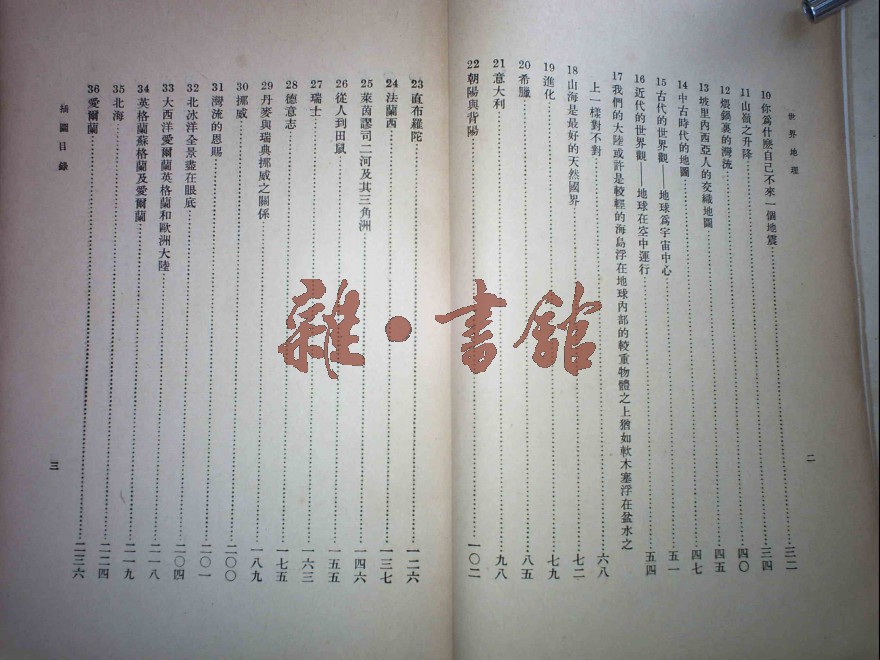 世界地理
10 你爲什麼自己不來一個地震……三二
11 山嶺之升降……三四
12 煨鍋裏的灣流……四〇
13 坡里內西亞人的交織地圖……四五
14 中古時代的地圖……四七
15 古代的世界觀——地球爲宇宙中心……五一
16 近代的世界觀——地球在空中運行……五四
17 我們的大陸或許是較輕的海島浮在地球內部的較重物體之上猶如軟木塞浮在盆水之
上一樣對不對……六八
18 山海是最好的天然國界……七二
19 進化……七九
20 希臘……八五
21 意大利……九八
22 朝陽與背陽……一〇二
二
23 直布羅陀……一二六
24 法蘭西……一三七
25 萊茵謬司二河及其三角洲……一四六
26 從人到田鼠……一五五
27 瑞士……一六三
28 德意志……一七五
29 丹麥與瑞典挪威之關係……一八九
30 挪威……二〇〇
31 灣流的恩賜……二〇一
32 北冰洋全景盡在眼底……二〇四
33 大西洋愛爾蘭英格蘭和歐洲大陸……二一八
34 英格蘭蘇格蘭及愛爾蘭……二一九
35 北海……二二四
36 愛爾蘭……二三六
插圖目錄
三
雜·書館